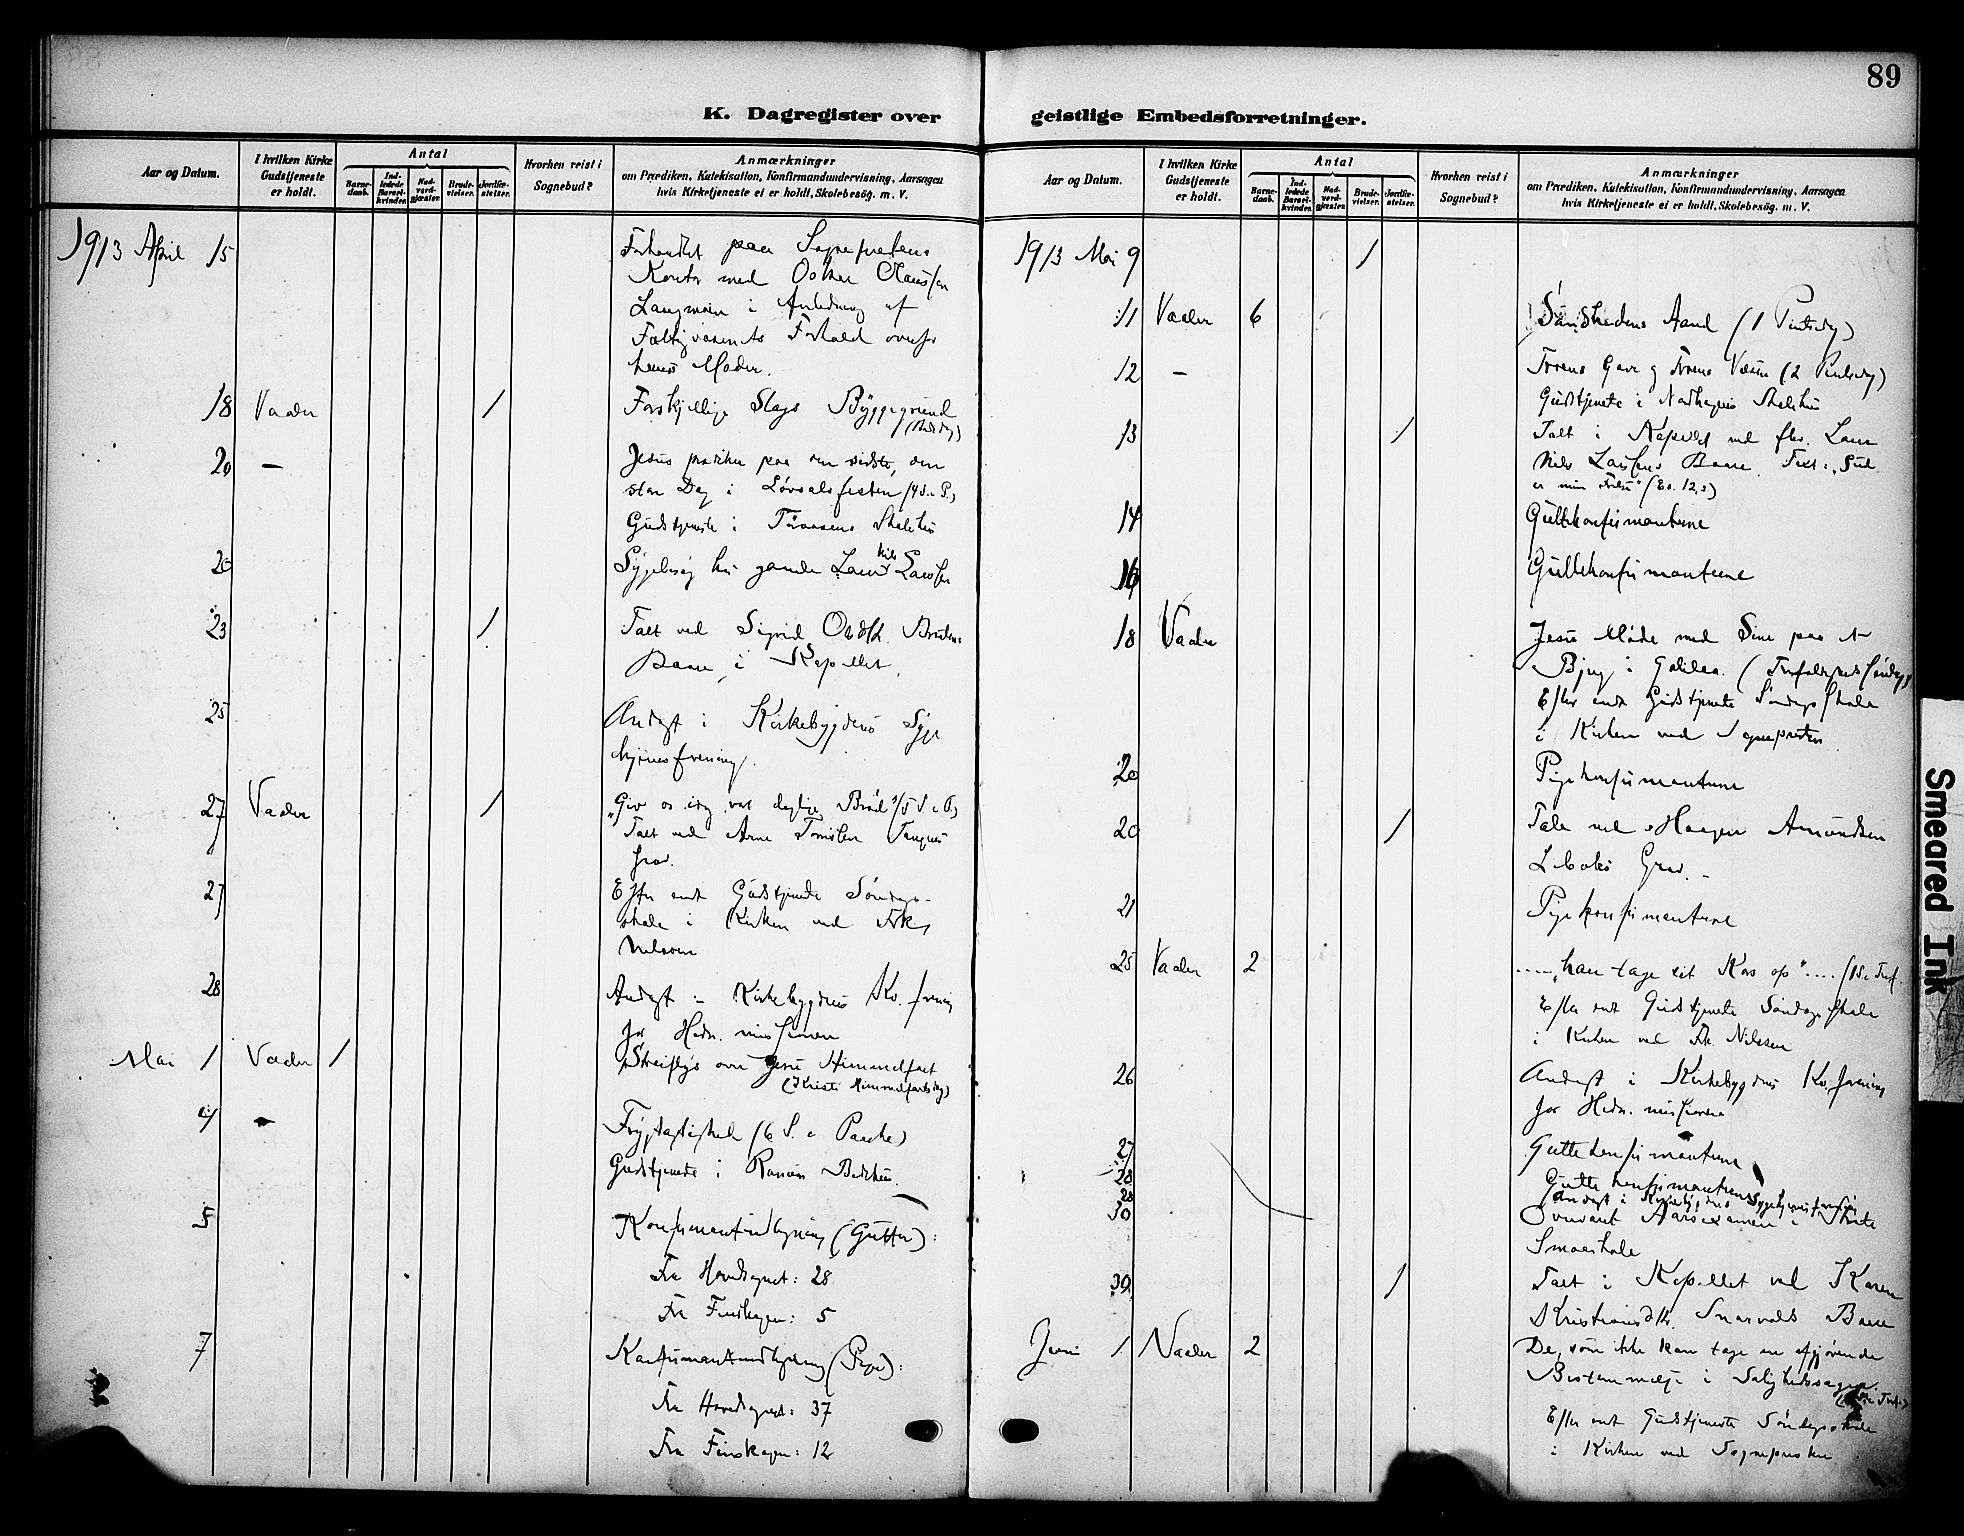 89
K. Dagregister over geistlige Embedsforretninger.
Aar og Datum.
I hvilken Kirke Gudstjeneste er holdt.
Antal
Barnedaab.
Indledede Barselkvinder.
Nadverdgjæster.
Brudevielser.
Jordfæstelser.
Hvorhen reist i Sognebud?
Anmærkninger
om Prædiken, Katekisation, Konfirmandundervisning, Aarsagen
hvis Kirketjeneste ei er holdt, Skolebesøg. m. V.
1913 April 15
Forhandlet paa Sogneprestens
Kontor med Oskar Olaussen
Langmoen i Anledning af
Fattigvæsenets Forhold overfor
hans Moder.
18 Vaaler /
Forskjellige Slags Byggegrund
20 —
Jesus prædiker paa den sidste, den
store Dag i Løvsalsfesten (4 S. e. P.)
Gudstjeneste i Skolehus
20
Sygebesøg hos gamle Lars Nils Larsen
23 /
Talt ved Sigrid
Baare i Kapellet.
25
Andagt i Kirkebygdens Syge
hjemsforening.
27 Vaaler /
"Giv os idag vort daglige Brød" (5 S. e. P.)
Talt ved Arne
Grav.
27
Efter endt Gudstjeneste Søndags-
skole i Kirken ved Frk.
Nilssen
28
Andagt i Kirkebygdens Kv. forening
for Hedn. missionen
Mai 1 Vaaler 1
Streiflys over Jesu Himmelfart
(Kristi Himmelfartsdag)
4 —
Frygtagtighed (6 S. e. Paaske)
Gudstjeneste i Bedehus.
5
Konfirmantindlysning (Gutter):
Fra Hovedsognet: 28
Fra Finskogen: 5
7
Konfirmantindlysning (Piger):
Fra Hovedsognet: 37
Fra Finskogen: 12
Aar og Datum.
I hvilken Kirke Gudstjeneste er holdt.
Antal
Barnedaab.
Indledede Barselkvinder.
Nadverdgjæster.
Brudevielser.
Jordfæstelser.
Hvorhen reist i Sognebud?
Anmærkninger
om Prædiken, Katekisation, Konfirmandundervisning, Aarsagen
hvis Kirketjeneste ei er holdt, Skolebesøg. m. V.
1913 Mai 9 /
11 Vaaler 6
Sandhedens Aand (1 Pintsedag)
12 —
Troens Gave og Troens Væsen (2 Pintsedag)
Gudstjeneste i Skolehus
13 /
Talt i Kapellet ved fhv. Lars
Nils Larsens Baare. Text: "Gud
er min Frelse" (Es. 12,2)
14
Guttekonfirmanterne
16
Guttekonfirmanterne
18 Vaaler
Jesu Møde med Sine paa et
Bjerg i Galilæa. (Trefoldighedssøndag)
Efter endt Gudstjeneste Søndagsskole
i Kirken ved Sognepresten
20
Pigekonfirmanterne
20 /
Tale ved Haagen Amundsen
Grav.
21
Pigekonfirmanterne
25 Vaaler 2
.... "han tage sit Kors op" .... (1 S. e. Tref.
Efter endt Gudstjeneste Søndagsskole
i Kirken ved Frk. Nilssen
26
Andagt i Kirkebygdens Kv. forening
for Hedn. missionen
27
Guttekonfirmanterne
28
Guttekonfirmanterne
28
Andagt i Kirkebygdens Sygehjemsforening
30
Overvaret Aarsexamen i
Smaaskole
30 /
Talt i Kapellet ved Karen
Kristiansdtr. Snarvolds Baare
Juni 1 Vaaler 2
De, som ikke kan tage en afgjørende
Bestemmelse i Salighedssagen
Efter endt Gudstjeneste Søndagsskole
i Kirken ved Sognepresten
Smeared Ink